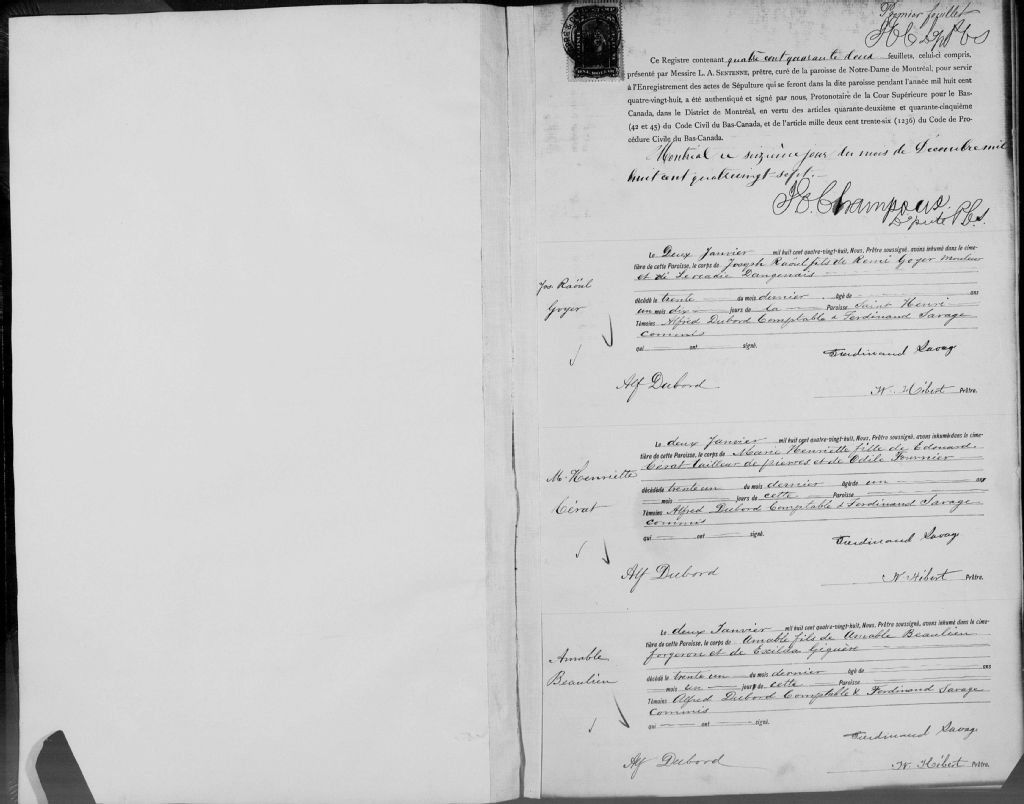 Premier feuillet
Ce Registre contenant quatre cent quarante deux feuillets, celui-ci compris,
présenté par Messire L. A. SENTENNE, prêtre, curé de la paroisse de Notre-Dame de Montréal, pour servir
à l'Enregistrement des actes de Sépulture qui se feront dans la dite paroisse pendant l'année mil huit cent
quatre-vingt-huit, a été authentiqué et signé par nous, Protonotaire de la Cour Supérieure pour le Bas-
Canada, dans le District de Montréal, en vertu des articles quarante-deuxième et quarante-cinquième
(42 et 45) du Code Civil du Bas-Canada, et de l'article mille deux cent trente-six (1236) du Code de Pro-
cédure Civile du Bas-Canada.
Montréal ce seizième jour du mois de Décembre mil
huit cent quatrevingt-sept.
Champoux.
Député P.C.S.
Jos. Raöul
Goyer
Le Deux Janvier mil huit cent quatre-vingt-huit, Nous, Prêtre soussigné, avons inhumé dans le cime-
tière de cette Paroisse, le corps de Joseph Raöul fils de Remi Goyer mouleur
et de Leocadie Dangenais
décédé le trente du mois dernier âgé de ans
un mois dix jours de la Paroisse Saint Henri
Témoins Alfred Dubord Comptable & Ferdinand Savage
Commis
qui ont signé.
Ferdinand Savag
Alf Dubord
N. Hébert Prêtre.
M. Henriette
Cérat
Le deux Janvier mil huit cent quatre-vingt-huit, Nous, Prêtre soussigné, avons inhumé dans le cime-
tière de cette Paroisse, le corps de Marie Henriette fille de Edouard
Cerat tailleur de pierres et de Odile Fournier
décédé de trente un du mois dernier âgé de un ans
mois jours de cette Paroisse
Témoins Alfred Dubord Comptable & Ferdinand Savage
Commis
qui ont signé.
Ferdinand Savag
Alf Dubord
N. Hébert Prêtre.
Amable
Beaulieu
Le deux Janvier mil huit cent quatre-vingt-huit, Nous, Prêtre soussigné, avons inhumé dans le cime-
tière de cette Paroisse, le corps de Amable fils de Amable Beaulieu
forgeron et de Exilda
décédé le trente un du mois dernier âgé de ans
mois un jour de cette Paroisse
Témoins Alfred Dubord Comptable & Ferdinand Savage
Commis
qui ont signé.
Ferdinand Savag
Alf Dubord
N. Hébert Prêtre.